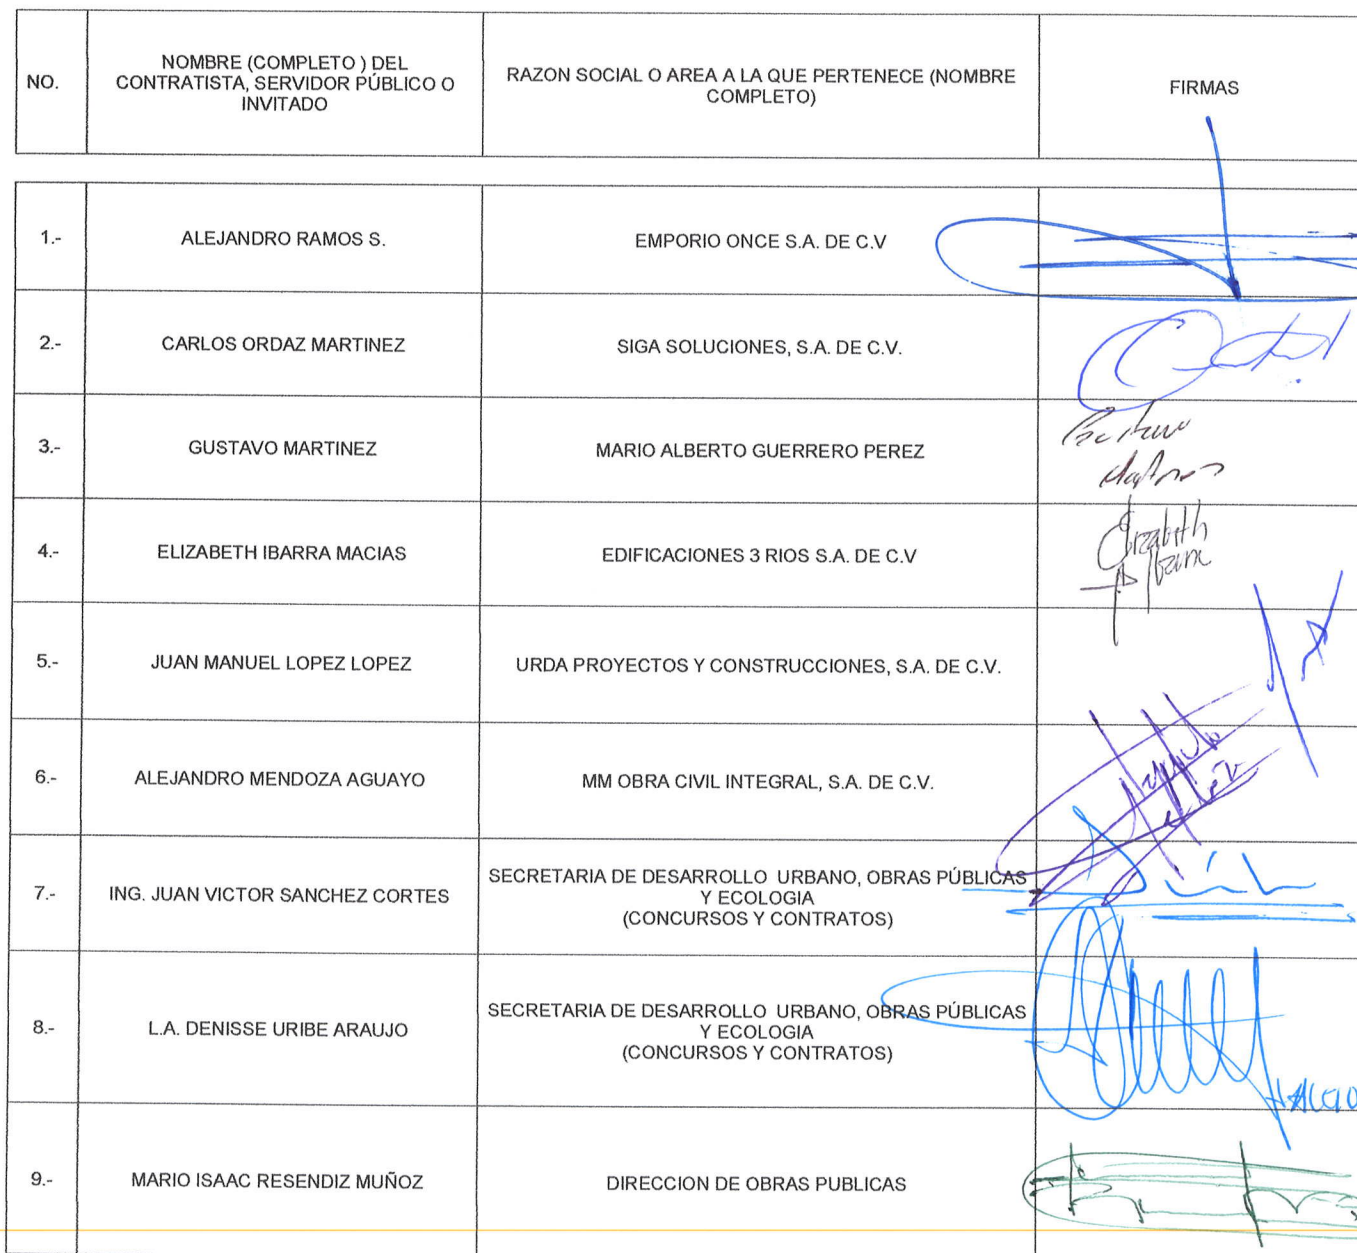 NO.
NOMBRE (COMPLETO ) DEL
CONTRATISTA, SERVIDOR PÚBLICO O
INVITADO
RAZON SOCIAL O AREA A LA QUE PERTENECE (NOMBRE
COMPLETO)
FIRMAS
1.-
ALEJANDRO RAMOS S.
EMPORIO ONCE S.A. DE C.V
2.-
CARLOS ORDAZ MARTINEZ
SIGA SOLUCIONES, S.A. DE C.V.
3.-
GUSTAVO MARTINEZ
MARIO ALBERTO GUERRERO PEREZ
4.-
ELIZABETH IBARRA MACIAS
EDIFICACIONES 3 RIOS S.A. DE C.V
Elizabeth
5.-
JUAN MANUEL LOPEZ LOPEZ
URDA PROYECTOS Y CONSTRUCCIONES, S.A. DE C.V.
6.-
ALEJANDRO MENDOZA AGUAYO
MM OBRA CIVIL INTEGRAL, S.A. DE C.V.
7.-
ING. JUAN VICTOR SANCHEZ CORTES
SECRETARIA DE DESARROLLO URBANO, OBRAS PÚBLICAS
Y ECOLOGIA
(CONCURSOS Y CONTRATOS)
8.-
L.A. DENISSE URIBE ARAUJO
SECRETARIA DE DESARROLLO URBANO, OBRAS PÚBLICAS
Y ECOLOGIA
(CONCURSOS Y CONTRATOS)
9.-
MARIO ISAAC RESENDIZ MUÑOZ
DIRECCION DE OBRAS PUBLICAS